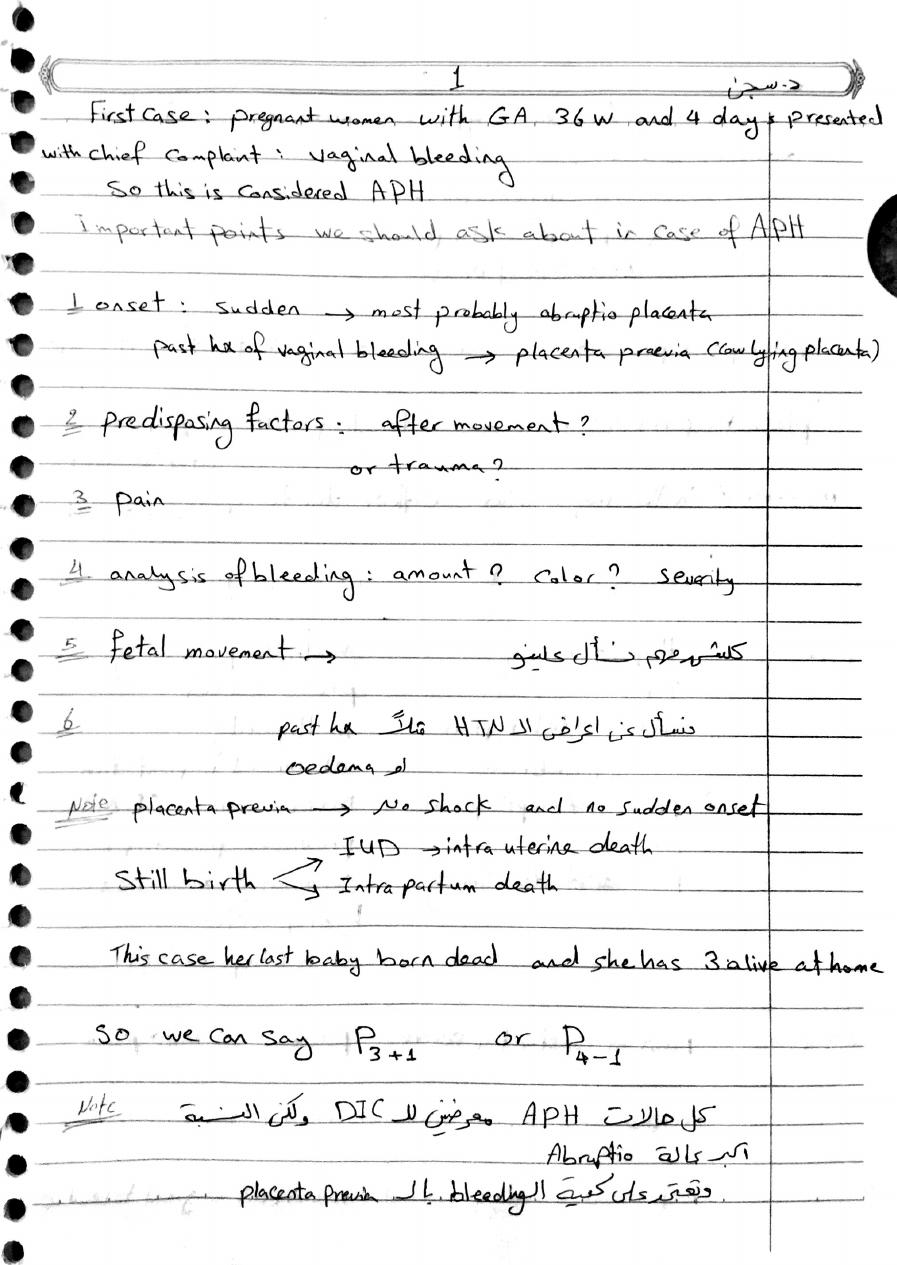 1
د. سجى
First case : pregnant women with GA 36 W and 4 days presented
with chief complaint : vaginal bleeding
So this is considered APH
Important points we should ask about in case of APH
1 onset : sudden → most probably abruptio placenta
past hx of vaginal bleeding → placenta praevia (low lying placenta)
2 predisposing factors : after movement ?
or trauma ?
3 pain
4 analysis of bleeding : amount ? color ? severity
5 fetal movement → كلش مهم نسأل علينو
6 نسأل عن اعراض الـ HTN مثلاً past hx
او oedema
Note placenta previa → No shock and no sudden onset
IUD → intra uterine death
Still birth
Intra partum death
This case her last baby born dead and she has 3 alive at home
So we can say P3+1 or P4-1
Note كل حالات APH معرضين للـ DIC ولكن النسبة
اكبر Abruptio
وتعتمد على كمية الـ bleeding بالـ placenta previa